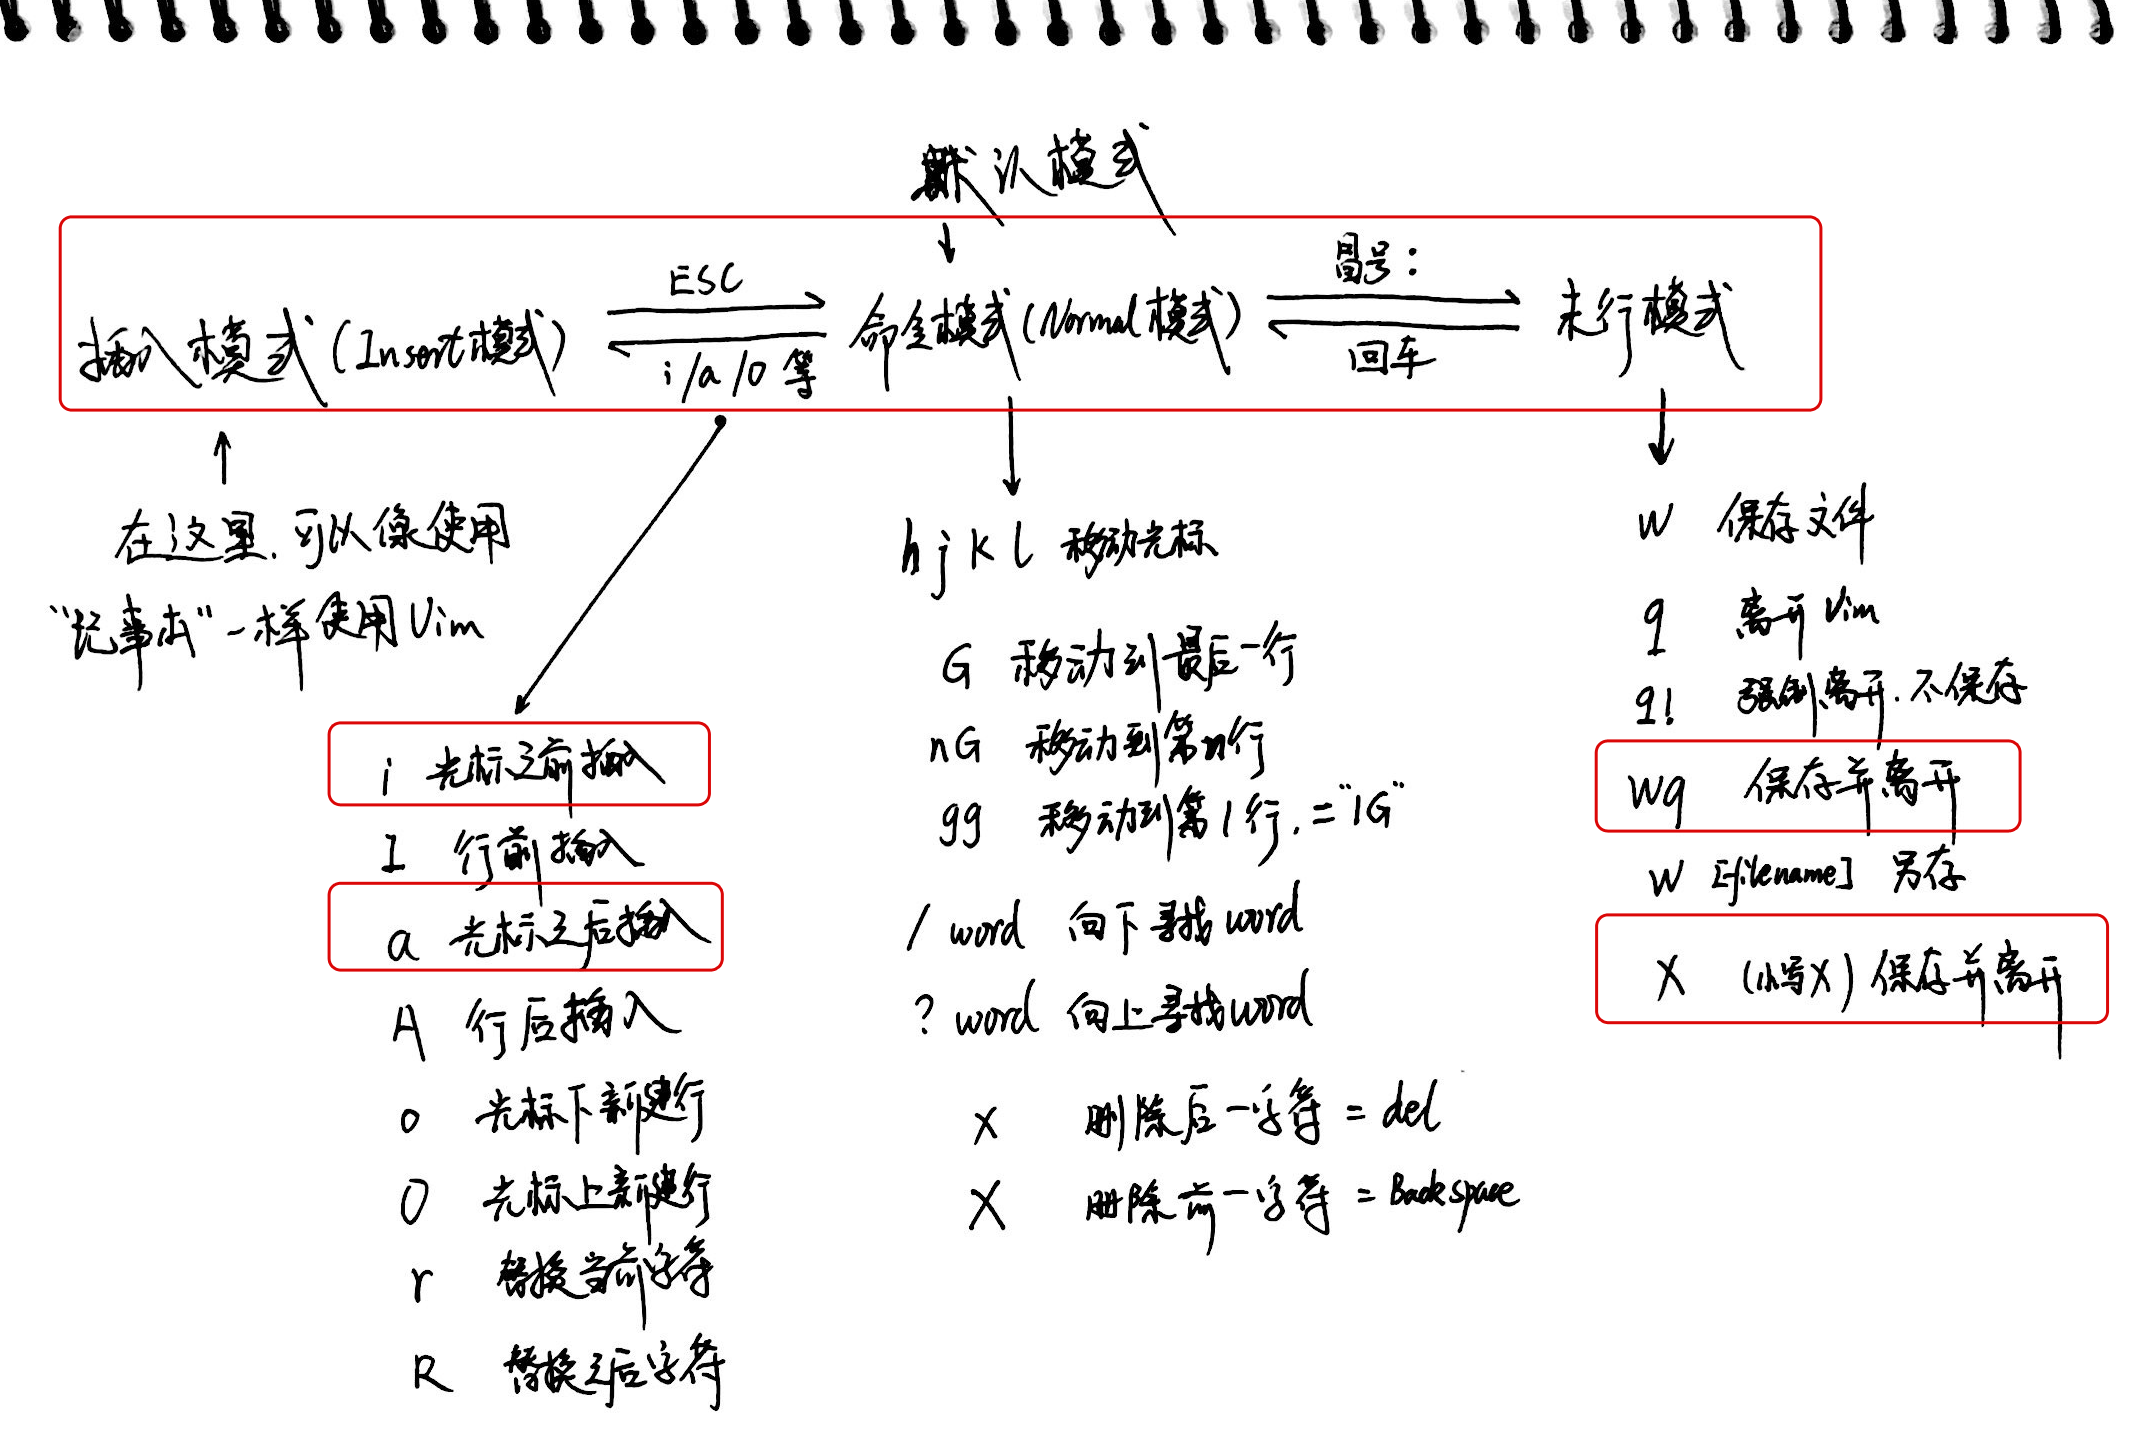 默认模式
插入模式(Insert模式)
ESC
i/a/O 等
命令模式(Normal模式)
冒号:
回车
末行模式
在这里,可以像使用
“记事本”一样使用Vim
i 光标之前插入
I 行前插入
a 光标之后插入
A 行后插入
o 光标下新建行
O 光标上新建行
r 替换当前字符
R 替换之后字符
h j k l 移动光标
G 移动到最后一行
nG 移动到第n行
gg 移动到第1行,="1G"
/ word 向下寻找word
? word 向上寻找word
x 删除后一字符 = del
X 删除前一字符 = Backspace
w 保存文件
q 离开Vim
q! 强制离开.不保存
wq 保存并离开
w [filename] 另存
x (小写x)保存并离开